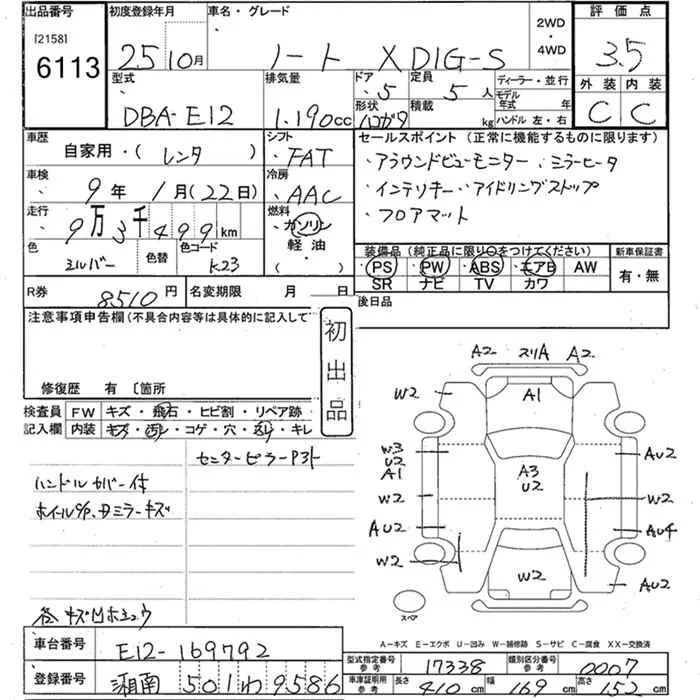 出品番号 初度登録年月 車名・グレード 2WD・4WD 評価点
[2158]
6113 25 10月 ノート X DIG-S 3.5
型式 排気量 ドア 定員 ディーラー・並行 外装 内装
・5 5人 モデル年式 年
DBA-E12 1.190cc 形状 積載 kg ハンドル 左・右 C C
車歴 シフト セールスポイント (正常に機能するものに限ります)
自家用・(レンタ) ・FAT ・アラウンドビューモニター・ミラーヒータ
車検 冷房 ・インテリキー・アイドリングストップ
9年 1月(22日) ・AAC ・フロアマット
走行 燃料
9万3千499km ・ガソリン
色 色替 色コード 軽油・
シルバー K23 ( )
装備品 (純正品に限り○をつけてください) 新車保証書
PS PW ABS エアB AW 有・無
SR ナビ TV カワ
R券 8510円 名変期限 月 日 後日品
注意事項申告欄(不具合内容等は具体的に記入して
初出品
修復歴 有 〔箇所
検査員 FW キズ・飛石・ヒビ割・リペア跡・
記入欄 内装 キズ・汚レ・コゲ・穴・スリ・キレ
センターピラーPカト
ハンドルカバー付
ホイールC/P、ドミラーキズ
各キズ凹ホショウ
A2 スリA A2
W2 A1
W3
U2
A1
AU2
A3
U2
W2 W2
AU2 AU4
W2 W2 AU2
スペア
A−キズ E−エクボ U−凹み W−補修跡 S−サビ C−腐食 XX−交換済
車台番号 E12-169792
型式指定番号 参考 17338 類別区分番号 参考 0007
登録番号 湘南 501 わ 9586
車庫証明用 参考 長さ 410cm 幅 169cm 高さ 152cm